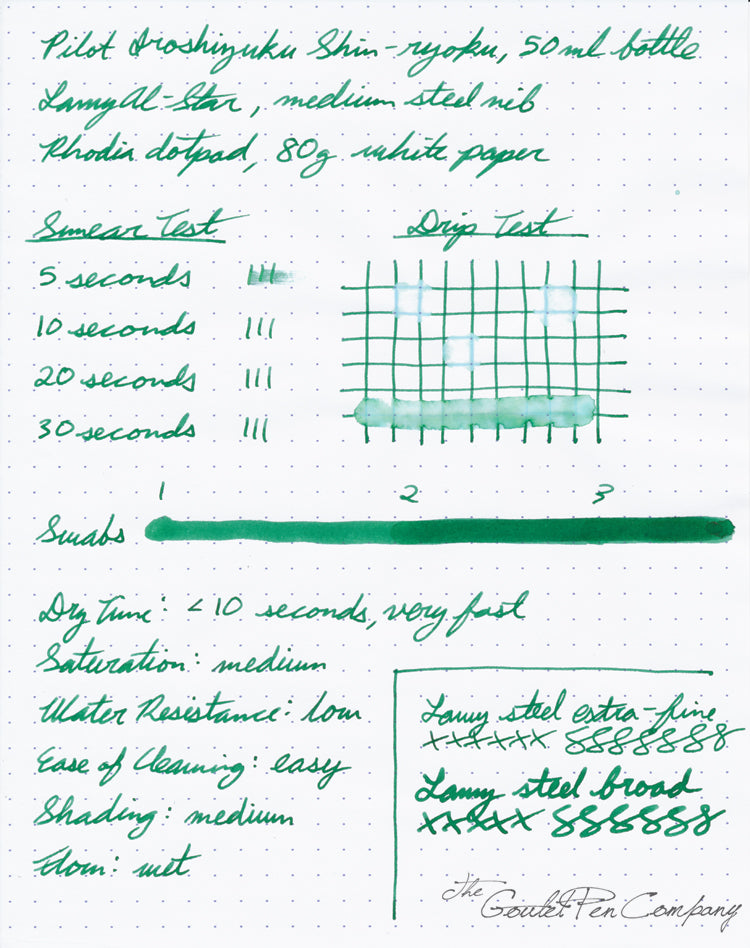 Pilot Iroshizuku Shin-ryoku, 50ml bottle
Lamy Al-Star, medium steel nib
Rhodia dotpad, 80g white paper
Smear Test
5 seconds
10 seconds
20 seconds
30 seconds
Drip Test
1 2 3
Swabs
Dry Time: <10 seconds, very fast
Saturation: medium
Water Resistance: low
Ease of Cleaning: easy
Shading: medium
Flow: wet
Lamy steel extra-fine
xxxxxx 88888888
Lamy steel broad
xxxxx 8888888
The Goulet Pen Company